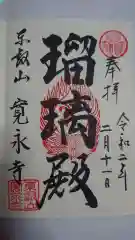 奉拝
令和二年
二月十一日
瑠璃殿
東叡山
寛永寺